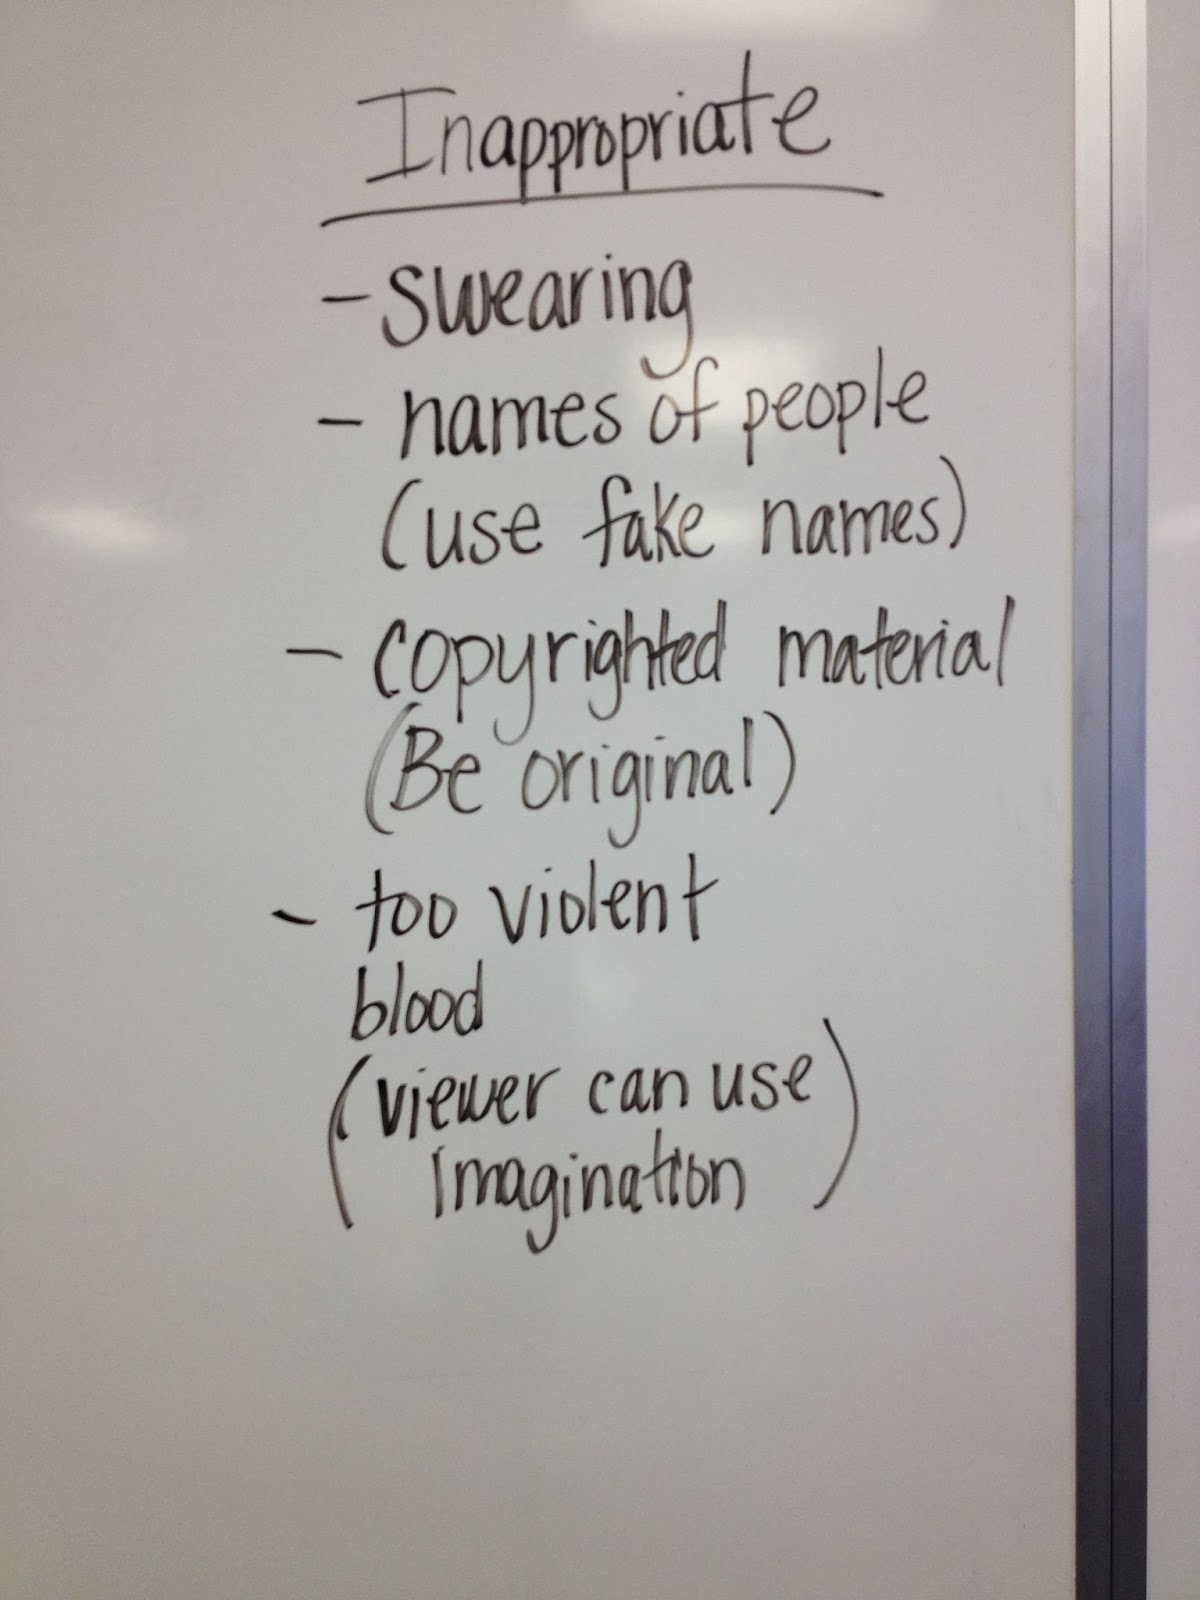 Inappropriate
- swearing
- names of people
(use fake names)
- copyrighted material
(Be original)
- too violent
blood
(viewer can use
imagination)